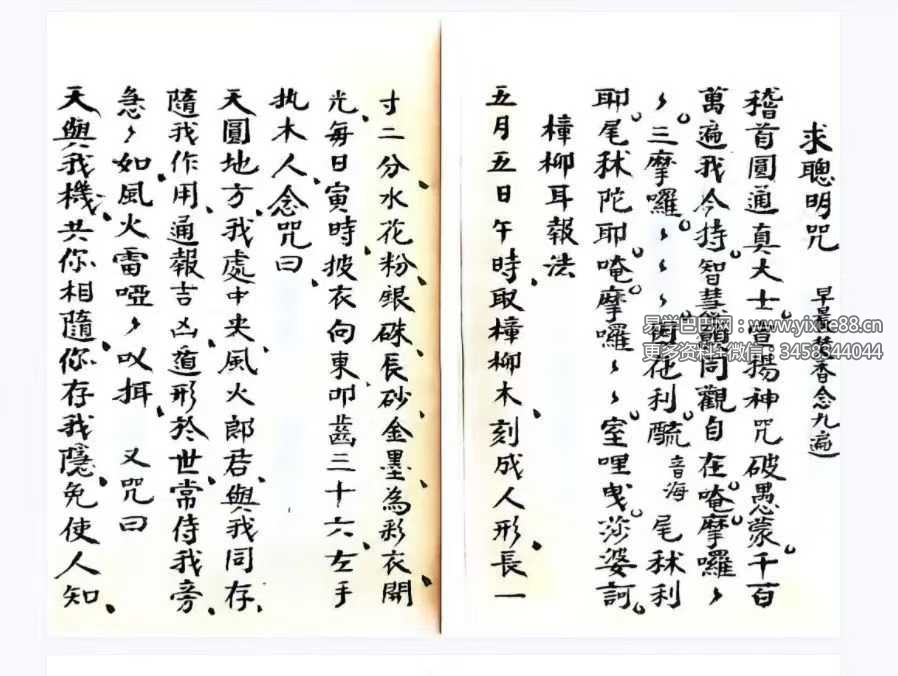 求聰明咒 早晨焚香念九遍
稽首圓通真大士宣揚神咒破愚蒙千百
萬遍我今持智慧願同觀自在唵摩囉〻
〻三摩囉〻〻〻因佗利醯音海尾秫利
耶尾秫陀耶唵摩囉〻〻室哩曳莎婆訶
樟柳耳報法
五月五日午時取樟柳木刻成人形長一
寸二分水花粉銀硃辰砂金墨為彩衣開
光每日寅時披衣向東叩齒三十六左手
执木人念咒曰
天圓地方我處中央風火郎君與我同存
隨我作用通報吉凶遁形於世常侍我旁
急〻如風火雷啞〻吹揖 又咒曰
天與我機共你相隨你存我隱免使人知
易学巴巴网：www.yixue88.cn
更多资料+微信：3458344044